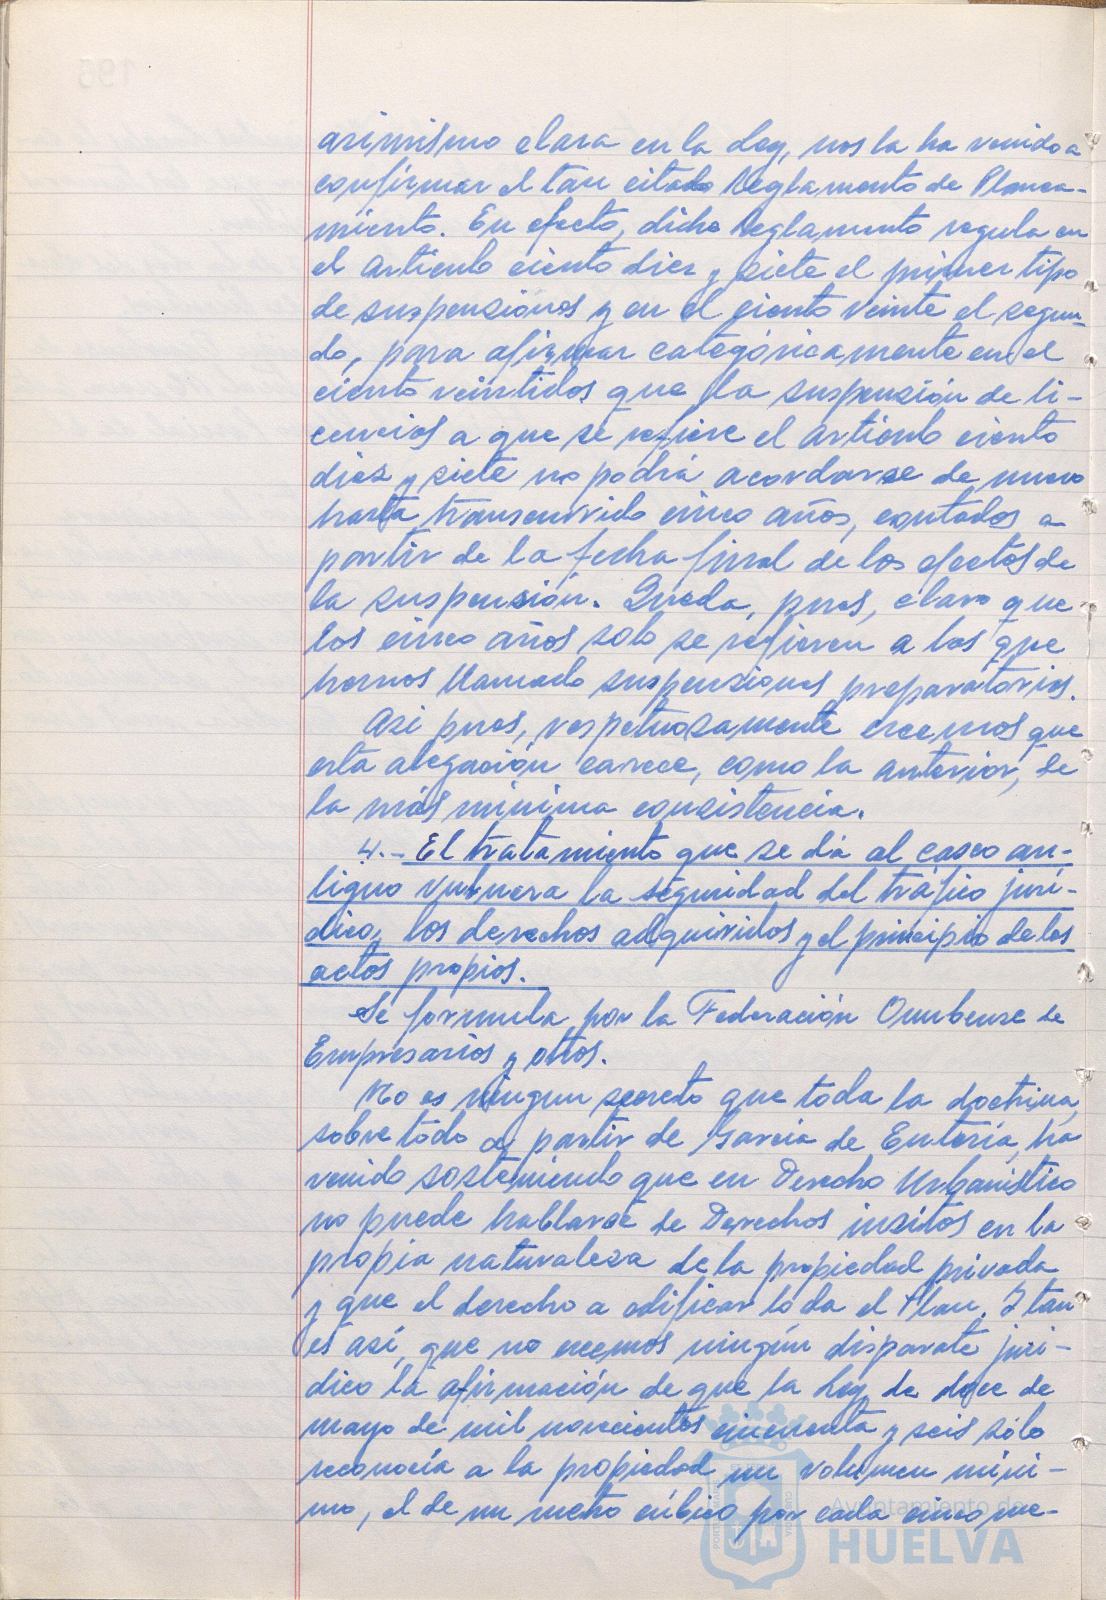 asimismo clara en la Ley, nos la ha venido a
confirmar el tan citado Reglamento de Planea-
miento. En efecto, dicho Reglamento regula en
el articulo ciento diez y siete el primer tipo
de suspensiones y en el ciento veinte el segun-
do, para afirmar categóricamente en el
ciento veintidos que la suspensión de li-
cencias a que se refiere el articulo ciento
diez y siete no podrá acordarse de nuevo
hasta transcurrido cinco años, contados a
partir de la fecha final de los efectos de
la suspensión. Queda, pues, claro que
los cinco años solo se refieren a las que
hemos llamado suspensiones preparatorias.
Asi pues, respetuosamente creemos que
esta alegación carece, como la anterior, de
la más minima consistencia.
4.- El tratamiento que se dá al casco an-
tiguo vulnera la seguridad del tráfico jurí-
dico, los derechos adquiridos y el principio de los
actos propios.
Se formula por la Federación Onubense de
Empresarios y otros.
No es ningun secreto que toda la doctrina,
sobre todo a partir de Garcia de Enterría, ha
venido sosteniendo que en Derecho Urbanístico
no puede hablarse de Derechos insitos en la
propia naturaleza de la propiedad privada
y que el derecho a edificar lo da el Plan. Y tan
es así, que no creemos ningún disparate jurí-
dico la afirmación de que la Ley de doce de
mayo de mil novecientos cincuenta y seis sólo
reconocía a la propiedad un volumen míni-
mo, el de un metro cúbico por cada cinco me-
Ayuntamiento de
HUELVA